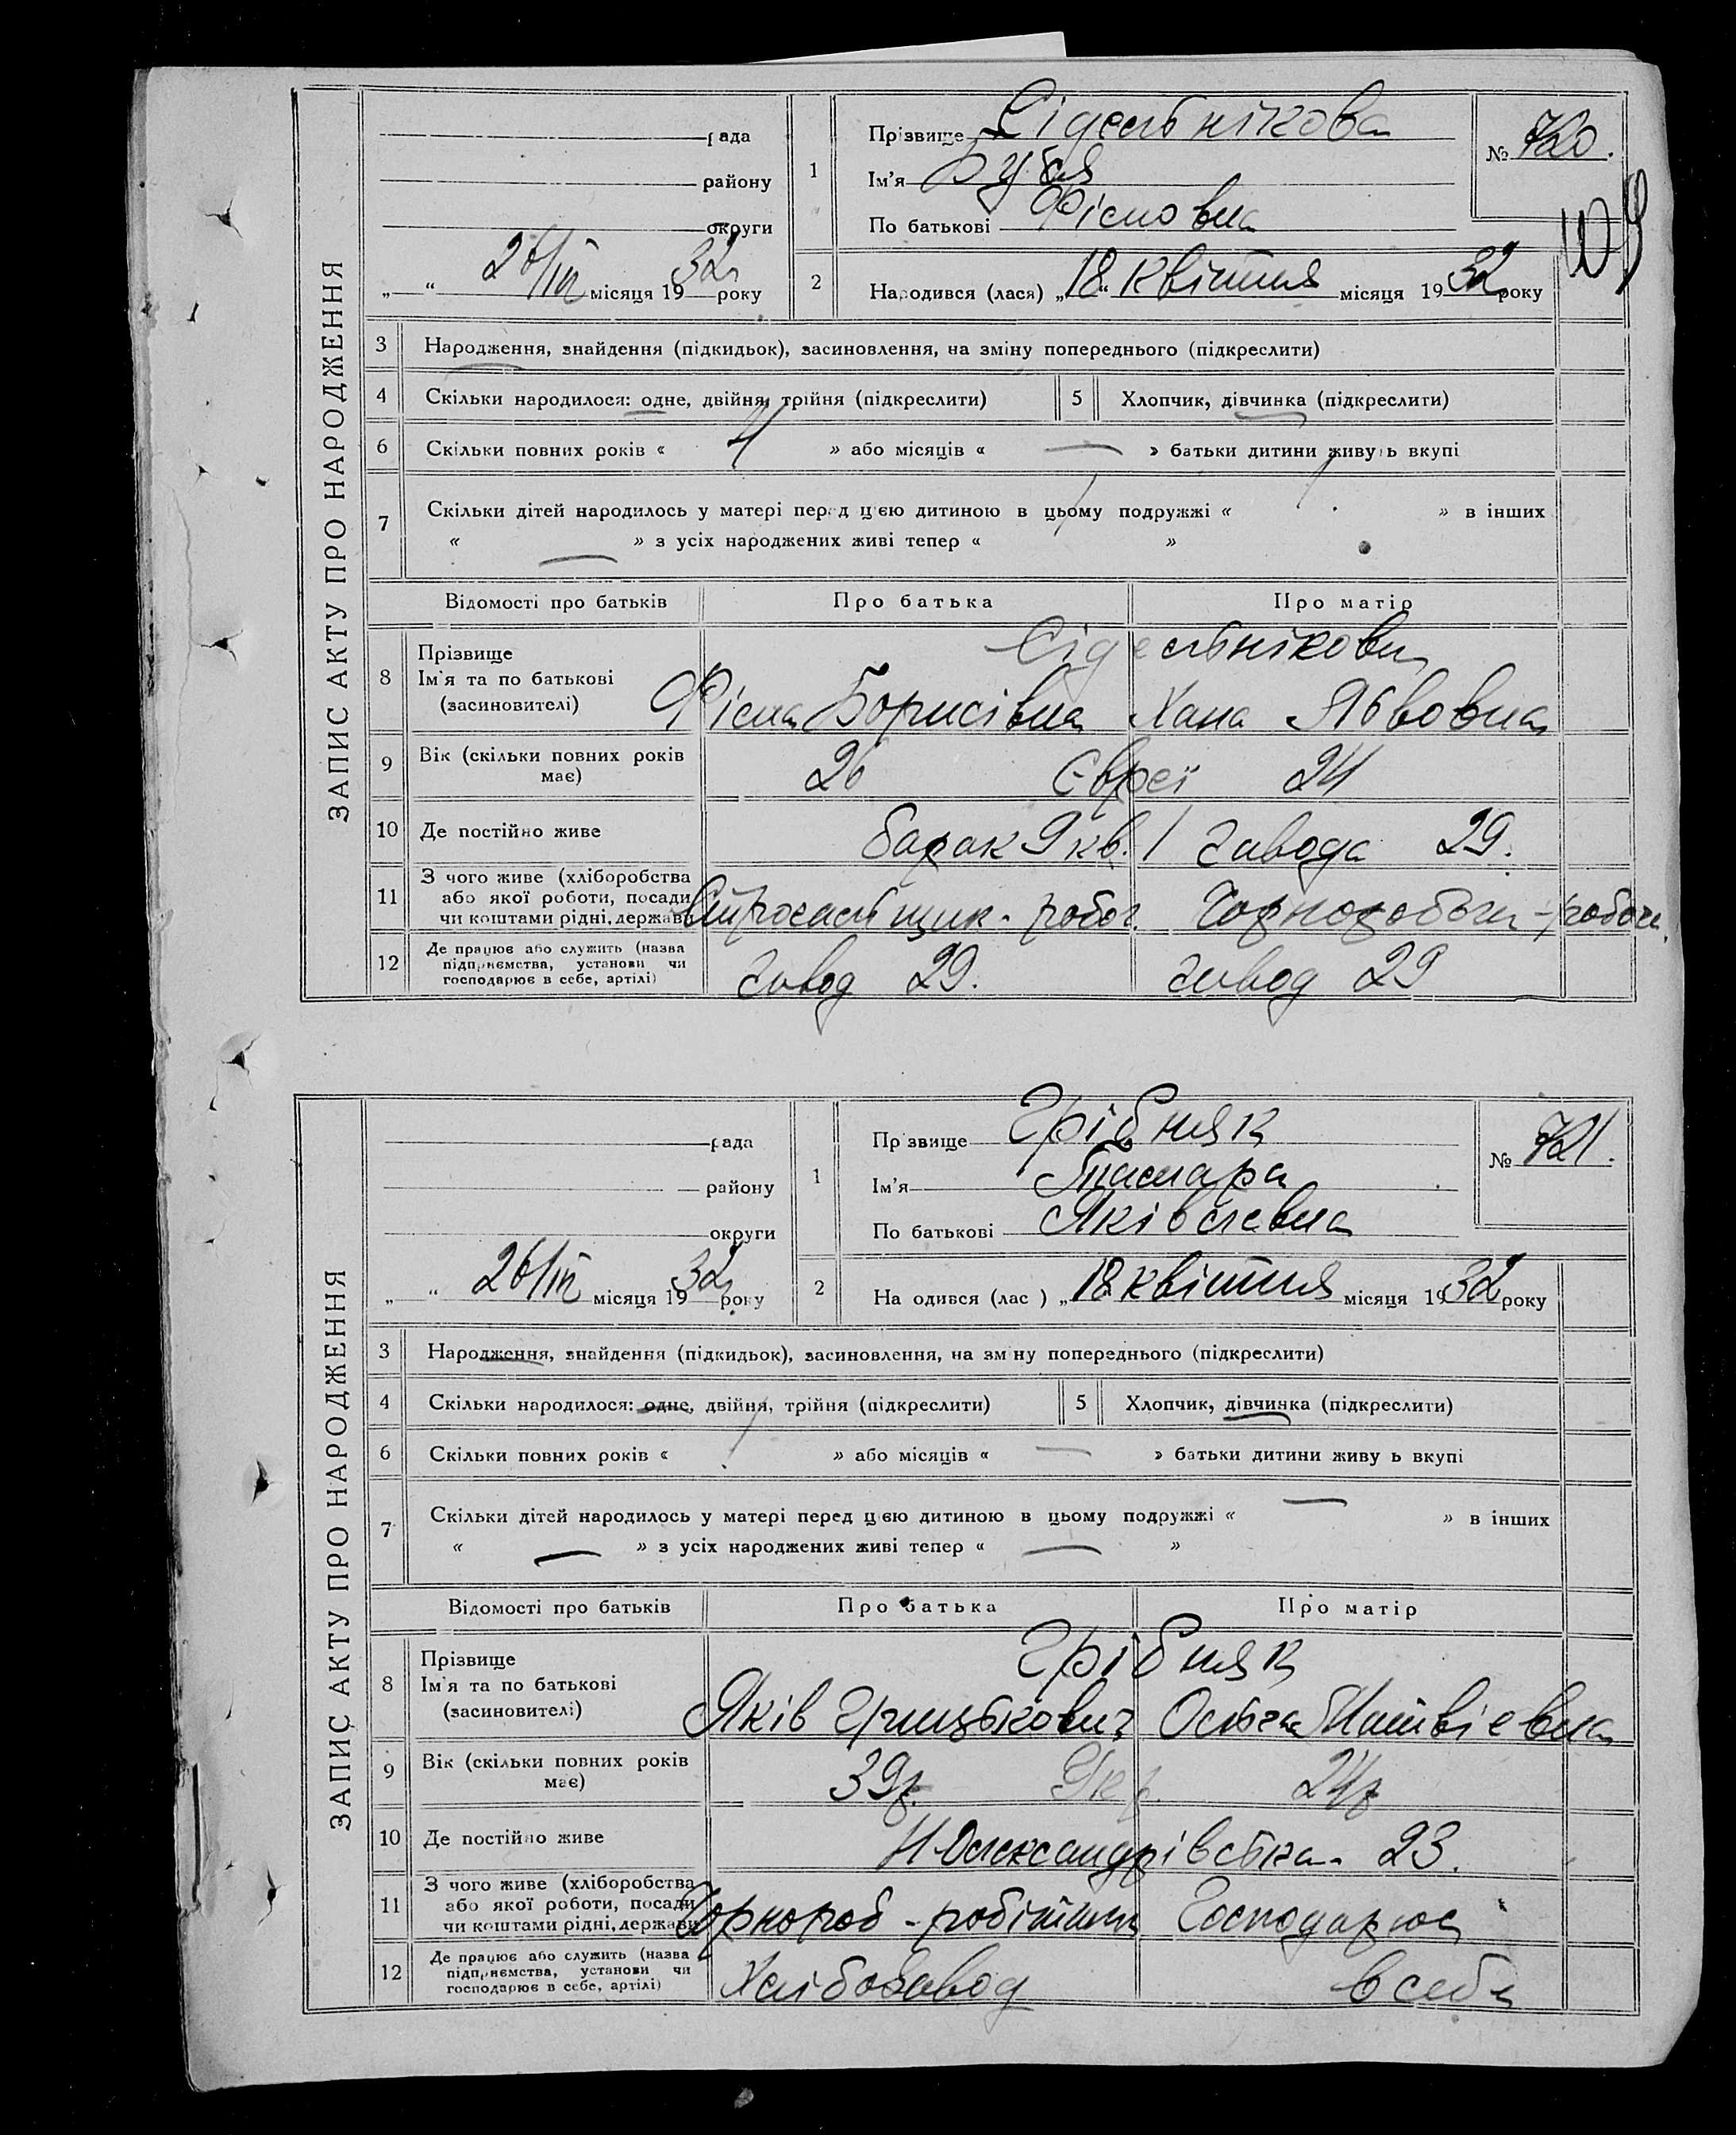 ЗАПИС АКТУ ПРО НАРОДЖЕННЯ
рада
району
округи
26/IV місяця 1932 року
1
Прізвище Сідельнікова
Ім'я Бузя
По батькові Фісмовна
№ 720.
109
2
Народився (лася) „18“ квітня місяця 1932 року
3 Народження, знайдення (підкидьок), засиновлення, на зміну попереднього (підкреслити)
4 Скільки народилося: одне, двійня, трійня (підкреслити) 5 Хлопчик, дівчинка (підкреслити)
6 Скільки повних років « 4 » або місяців « — » батьки дитини живуть вкупі
7 Скільки дітей народилось у матері перед цією дитиною в цьому подружжі « » в інших
« — » з усіх народжених живі тепер « »
Відомості про батьків Про батька Про матір
8 Прізвище
Ім'я та по батькові
(засиновителі)
Сідельнікови
Фісма Борисівна Хана Львовна
9 Вік (скільки повних років має) 26 Євреї 24
10 Де постійно живе барак 9 кв. 1 завода 29.
11 З чого живе (хліборобства або якої роботи, посади чи коштами рідні, держави) робоч. робоч.
12 Де працює або служить (назва підприємства, установи чи господарює в себе, артілі) завод 29. завод 29
ЗАПИС АКТУ ПРО НАРОДЖЕННЯ
рада
району
округи
26/IV місяця 1932 року
1
Пр звище Грібняк
Ім'я Тамара
По батькові Яківлевна
№ 721.
2
На одився (лас ) „18 квітня місяця 1932 року
3 Народження, знайдення (підкидьок), засиновлення, на зм ну попереднього (підкреслити)
4 Скільки народилося: одне, двійня, трійня (підкреслити) 5 Хлопчик, дівчинка (підкреслити)
6 Скільки повних років « 1 » або місяців « — » батьки дитини живу ь вкупі
7 Скільки дітей народилось у матері перед цією дитиною в цьому подружжі « — » в інших
« — » з усіх народжених живі тепер « — »
Відомості про батьків Про батька Про матір
8 Прізвище
Ім'я та по батькові
(засиновителі)
Грібняк
Яків Грицькович Ольга Матвіевна
9 Вік (скільки повних років має) 39р. Укр. 24р
10 Де постійно живе Н-Олександрівська 23.
11 З чого живе (хліборобства або якої роботи, посади чи коштами рідні, держави) Чорнороб - робітник Господарює
12 Де працює або служить (назва підприємства, установи чи господарює в себе, артілі) Хлібозавод в себе